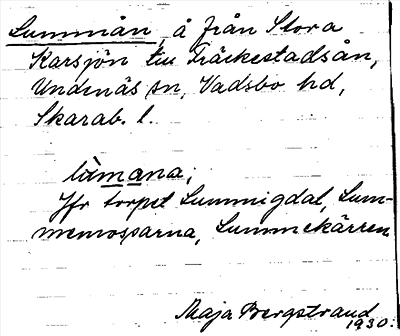 Lummån, å från Stora
Karsjön till Fräckestadsån,
Undenäs sn, Vadsbo hd,
Skarab. l.
låmana,
Jfr torpet Lummigdal, Lum-
memossarna, Lummekärren
Maja Bergstrand
1930.